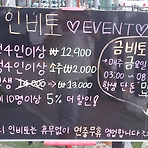 인비토 ♡EVENT♡
4인이상 ₩12.900
4인이상 소주₩2.000
생 14.000 → ₩13.000
10명이상 5% 더 할인!
금비토
*매주 금요일
03.00 ~ 08
학생 단돈
인비토는 유무없이 연중무휴 영업합니다